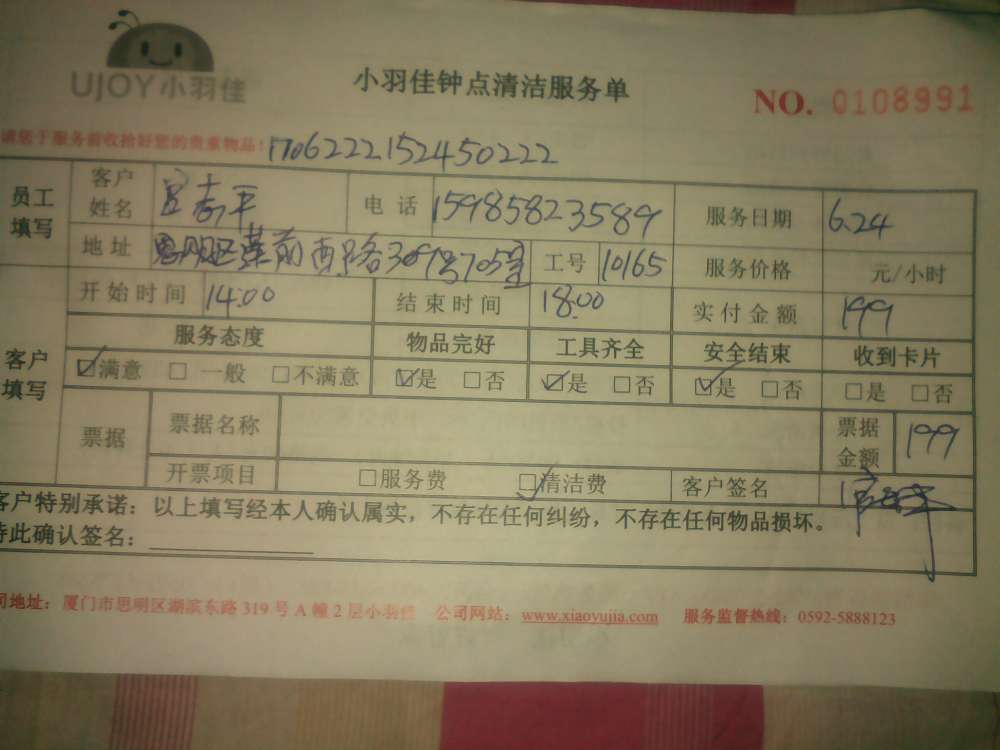 UJOY小羽佳
小羽佳钟点清洁服务单
NO. 0108991
请您于服务前收拾好您的贵重物品！1706222152450222
员工填写 客户姓名 电话 15985823589 服务日期 6.24
地址 思明区莲前西路309号705室 工号 10165 服务价格 元/小时
开始时间 14:00 结束时间 18:00 实付金额 199
客户填写 服务态度 物品完好 工具齐全 安全结束 收到卡片
☑满意 □一般 □不满意 ☑是 □否 ☑是 □否 ☑是 □否 □是 □否
票据 票据名称 票据金额 199
开票项目 □服务费 ☑清洁费 客户签名
客户特别承诺：以上填写经本人确认属实，不存在任何纠纷，不存在任何物品损坏。
特此确认签名：
司地址：厦门市思明区湖滨东路 319 号 A 幢 2 层小羽佳 公司网站：www.xiaoyujia.com 服务监督热线：0592-5888123